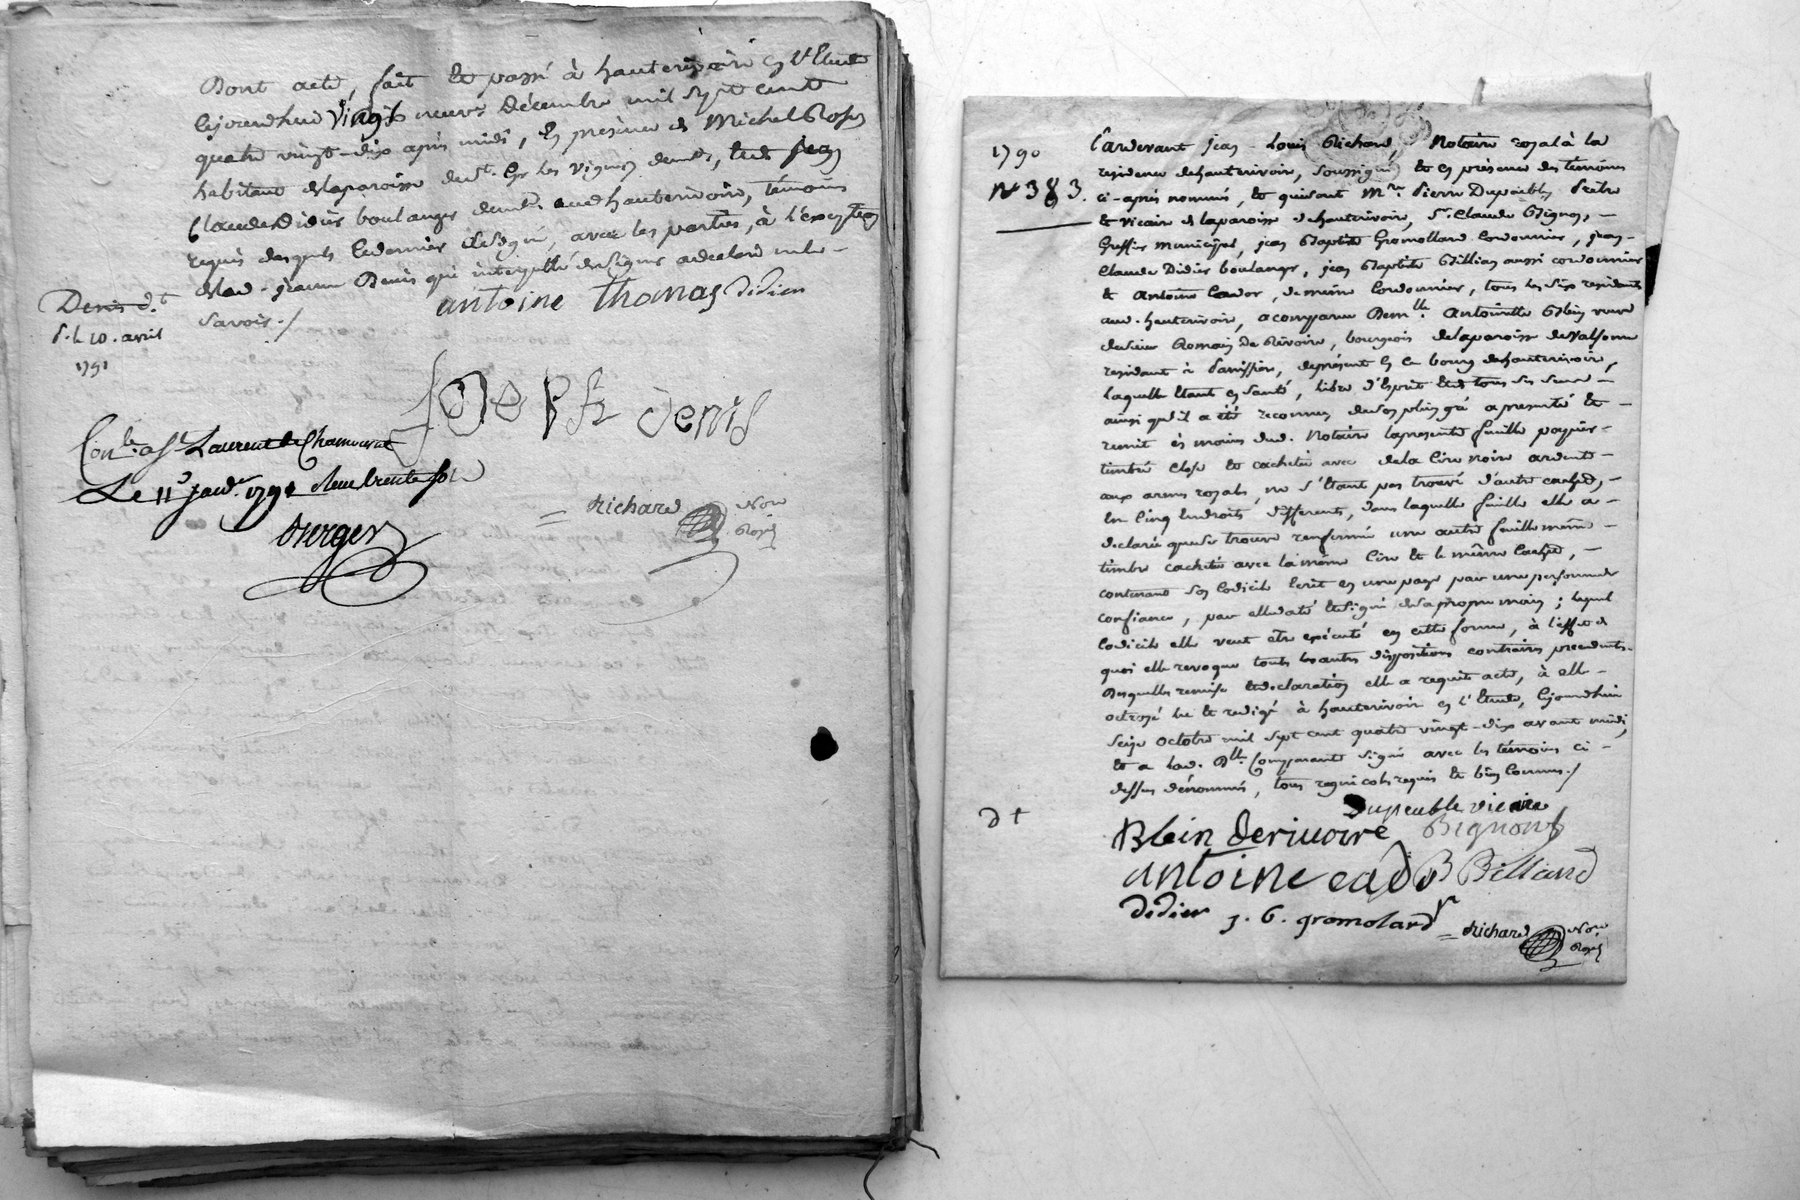 Dont acte, fait et passé à hauterivoire en l'Etude
cejourdhui vingt neuve Décembre mil sept cent
quatre vingt-dix après midi, en présence de Michel
habitant de la paroisse de st. les vignes demt., et de jean
Claude Didier boulanger demt. aud hauterivoire, témoins
requis desquels le dernier a signé, avec les parties, à l'exception
de lad. jeanne Denis qui interpellée de signer a déclaré ne le
savoir./
antoine thomas Didier
Denis d.t
1791
joseph denis
Con.le a St Laurent de Chamousset
Le 11 janv. 1791
richard Nore
Royal
1790
N° 383.
Pardevant jean-Louis Richard, Notaire royal à la
residence de hauterivoire, soussigné et en présence des témoins
ci-après nommés, et qui sont Mre. Pierre Dupeuble, Prêtre
et vicaire de la paroisse de hauterivoire, Sr. Claude Bignon,
Greffier municipal, jean Baptiste Gromollard cordonnier, jean-
Claude Didier boulanger, jean Baptiste Billiard aussi cordonnier
et Antoine Cador, de même cordonnier, tous les six residents
aud. hauterivoire, a comparu Demlle. Antoinette Blein veuve
de sieur Romain De Rivoire, bourgeois de la paroisse de Valsonne
residant à Panissière, de présent en ce bourg de hauterivoire,
laquelle étant en santé, libre d'Esprit et de tous ses sens
ainsi qu'il a été reconnu, de son plein gré a presenté et
remit ès mains dud. Notaire la presente feuille papier
timbré close et cachetée avec de la cire noire ardente
aux armes royales, ne s'étant pas trouvé d'autre cachet,
en cinq endroits differents, dans laquelle feuille elle a
declaré que se trouve renfermé une autre feuille même
timbre cachetée avec la même cire et le même cachet,
contenant son Codicile écrit en une page par une personne de
confiance, par elle daté et signé de sa propre main; lequel
Codicile elle veut etre exécuté en cette forme, à l'effet de
quoi elle revoque toutes les autres dispositions contraires precedentes.
Desquelles remise et declaration elle a requis acte, à elle
octroyé lu et redigé à hauterivoire en l'Etude, cejourdhui
seize octobre mil sept cent quatre vingt-dix avant midi,
et a lad. Dlle. Comparante signé avec les témoins ci-
dessus dénommés, tous regnicoles requis et bien connus./
Dupeuble vicaire
Blein Derivoire Bignon
antoine cador B Billiard
Didier j. B. gromolard
richard Nore
Royal